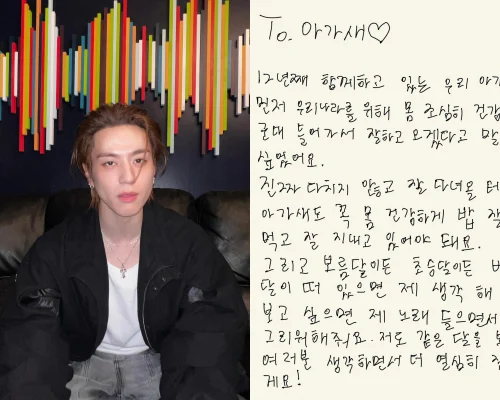 To. 아가새♡
12년째 함께하고 있는 우리 아가
먼저 우리나라를 위해 몸 조심히 건강
군대 들어가서 잘하고 오겠다고 말
싶었어요.
진짜 다치지 않고 잘 다녀올 테
아가새도 꼭 몸 건강하게 밥 잘
먹고 잘 지내고 있어야 돼요.
그리고 보름달이든 초승달이든
달이 떠 있으면 제 생각 해
보고 싶으면 제 노래 들으면서
그리워해줘요. 저도 같은 달을
여러분 생각하면서 더 열심히
게요!